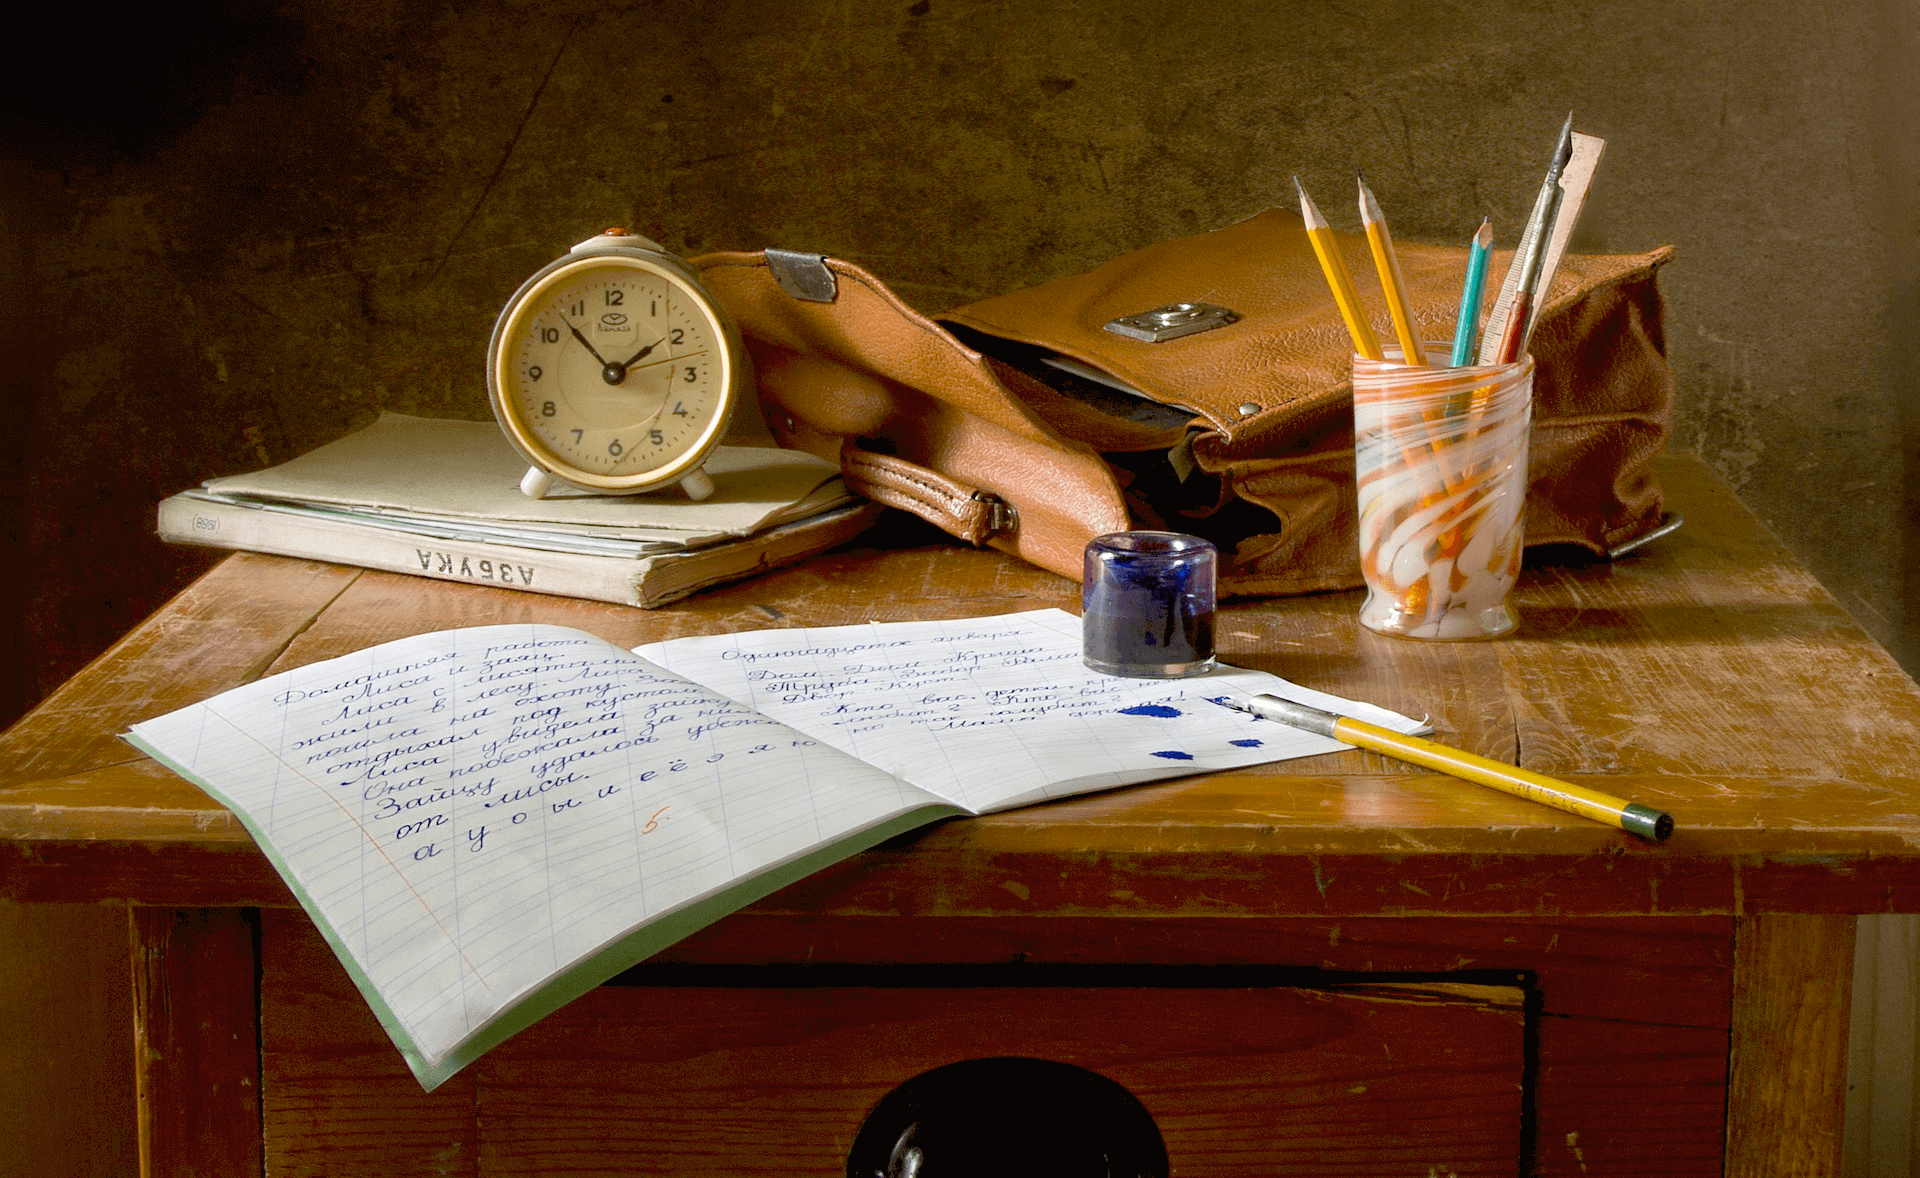 12
11
1
10
2
9
3
8
4
7
5
6
АЗБУКА
Домашняя работа
Лиса и заяц.
Лиса с лисятами
жили в лесу. Лиса
пошла на охоту. Заяц
отдыхал под кустом.
Лиса увидела зайку.
Она побежала за ним.
Зайцу удалось убежать
от лисы.
а у о ы и е ё э я ю
5.
Одиннадцатое января
Дом. Дом. Крыша.
Труба. Забор.
Двор. Куст.
Кто вас, детки,
любит? Кто вас
но так голубит?
Мама дорогая!